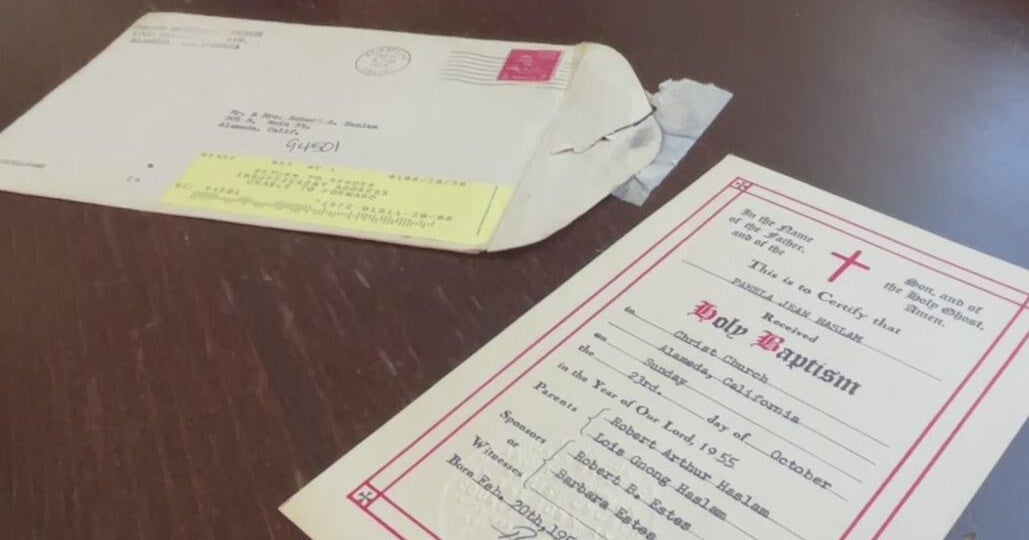 Mr. & Mrs. Robert A. Haslam
Main St.
Alameda, Calif.
94501
RETURN TO SENDER
INSUFFICIENT ADDRESS
UNABLE TO FORWARD
In the Name
of the Father,
and of the
Son, and of
the Holy Ghost.
Amen.
This is to Certify that
PAMELA JEAN HASLAM
Received
Holy Baptism
in Christ Church
Alameda, California
on Sunday
the 23rd. day of October
in the Year of Our Lord, 1955
Parents { Robert Arthur Haslam
Lois Gnong Haslam
Sponsors
or
Witnesses { Robert B. Estes
Barbara Estes
Born Feb. 20th, 195